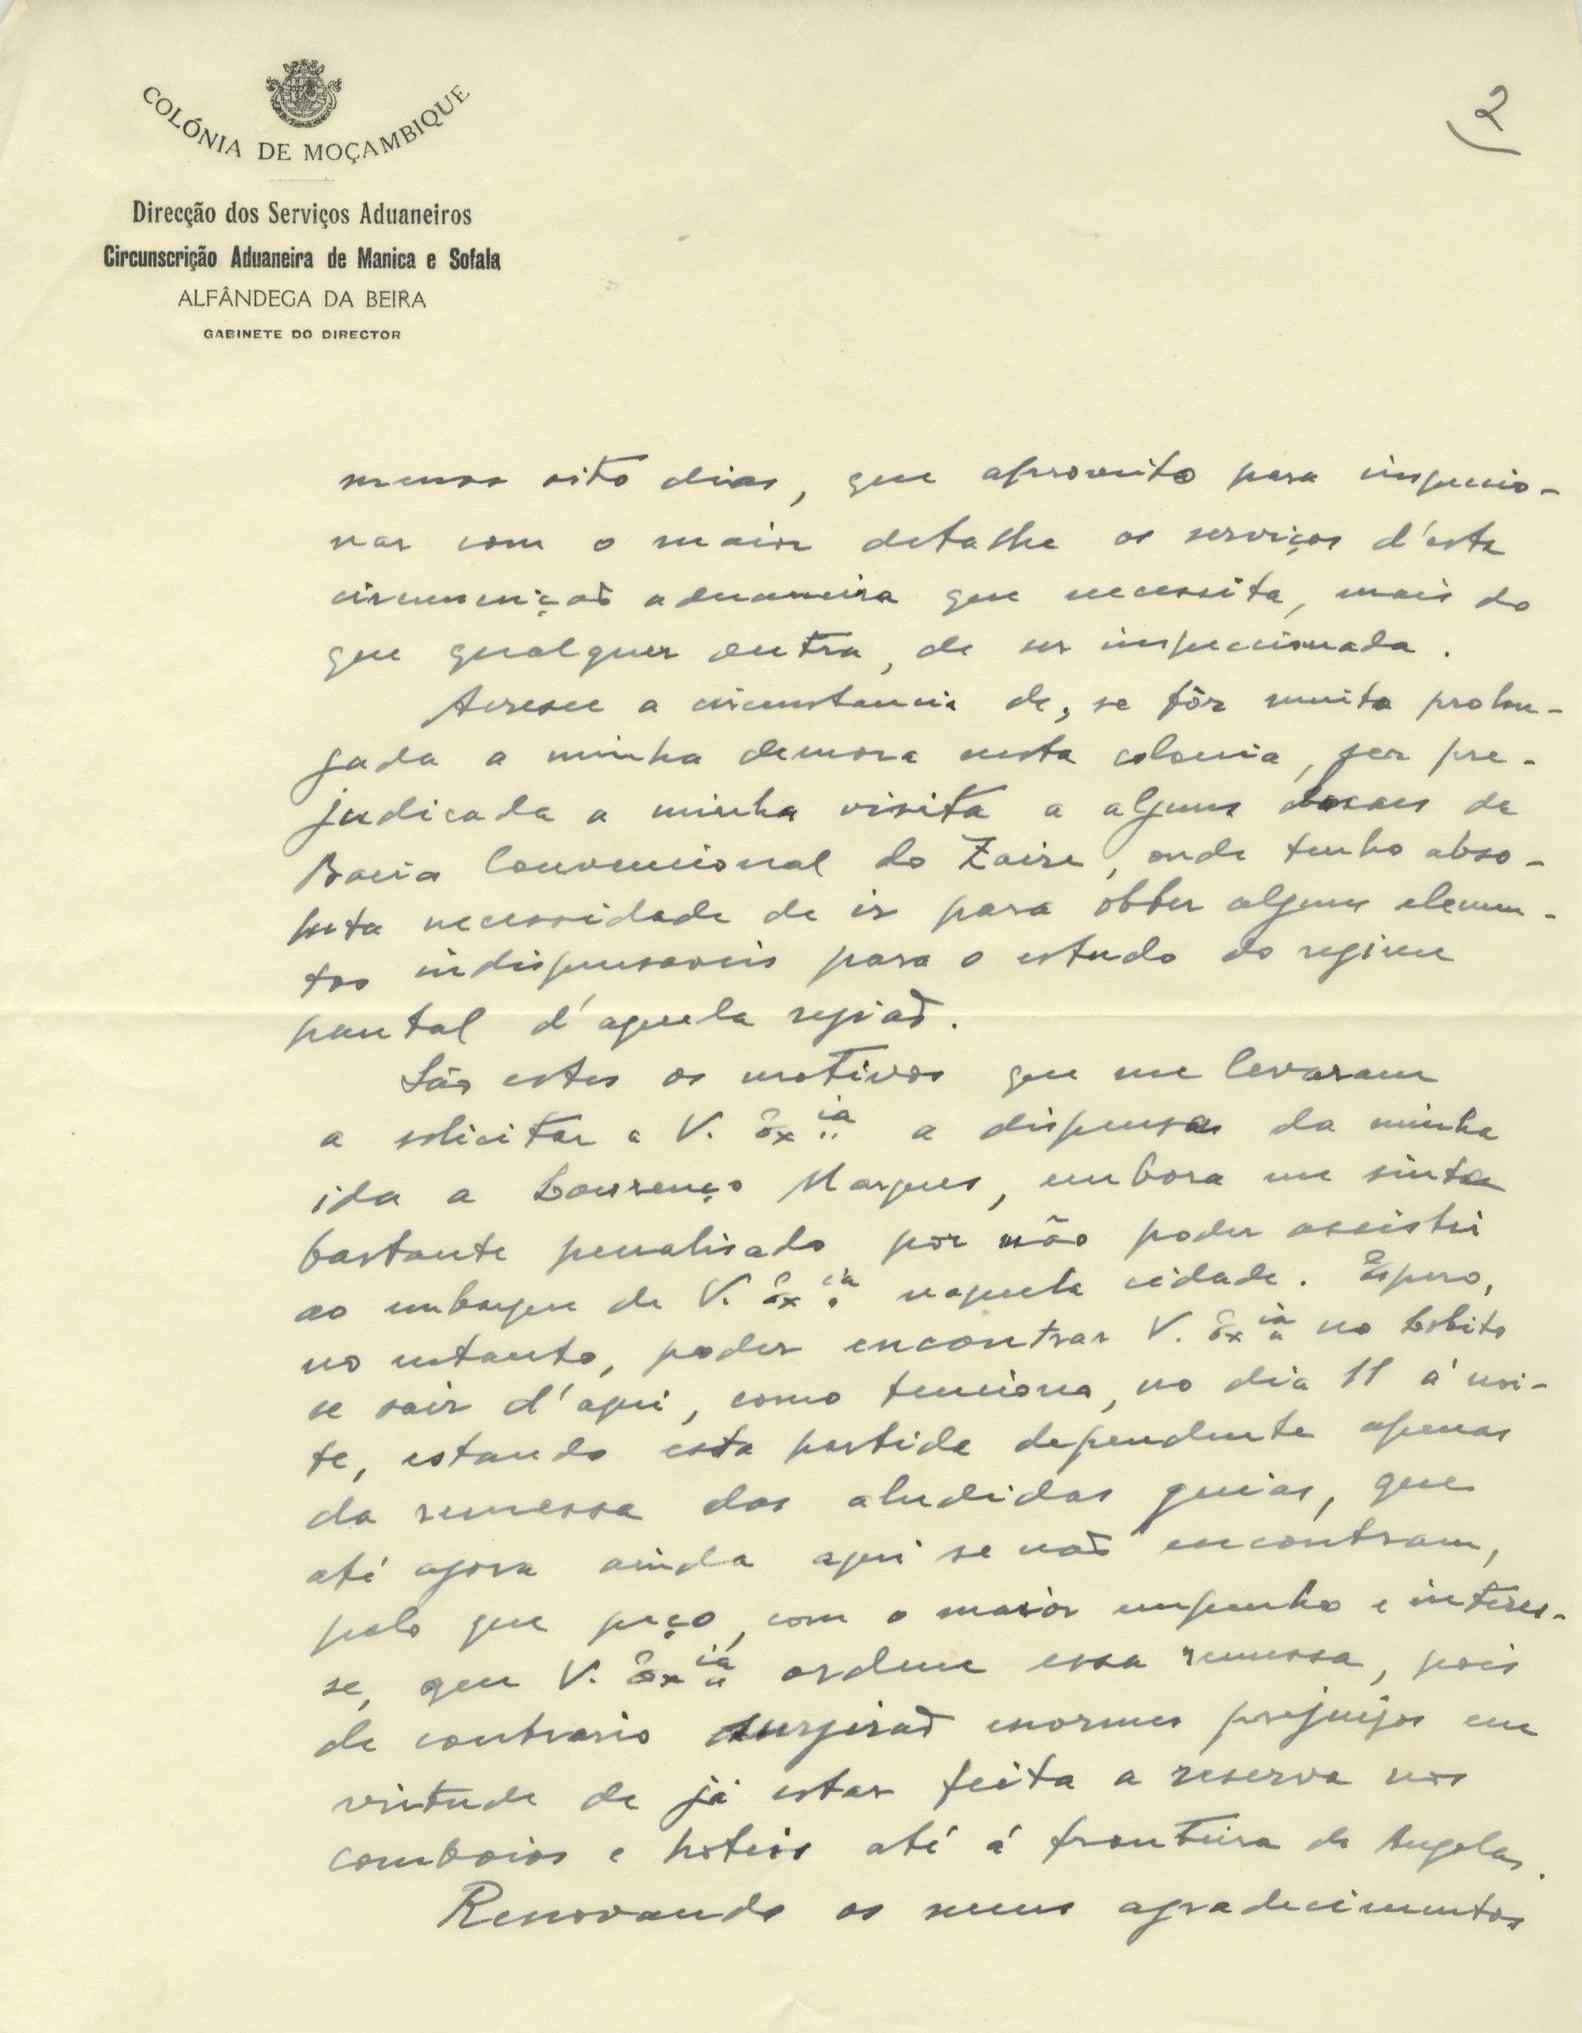 COLÓNIA DE MOÇAMBIQUE
2
Direcção dos Serviços Aduaneiros
Circunscrição Aduaneira de Manica e Sofala
ALFÂNDEGA DA BEIRA
GABINETE DO DIRECTOR
menos oito dias, que aproveito para inspecio-
nar com o maior detalhe os serviços d'esta
circunscriçaõ aduaneira que necessita, mais do
que qualquer outra, de ser inspeccionada.
Acresce a circunstancia de, se fôr muito prolon-
gada a minha demora nesta colonia, ser pre-
judicada a minha visita a alguns locaes da
Bacia Convencional do Zaire, onde tenho abso-
luta necessidade de ir para obter alguns elemen-
tos indispensaveis para o estudo do regimen
pautal d'aquela regiaõ.
São estes os motivos que me levaram
a solicitar a V. Ex.ia a dispensa da minha
ida a Lourenço Marques, embora me sinta
bastante penalisado por não poder assistir
ao embarque de V. Ex.ia naquela cidade. Espero,
no entanto, poder encontrar V. Ex.ia no Lobito
se sair d'aqui, como tenciono, no dia 11 á noi-
te, estando esta partida dependente apenas
da remessa das aludidas guias, que
até agora ainda aqui se naõ encontram,
pelo que peço, com o maior empenho e interes-
se, que V. Ex.ia ordene essa remessa, pois
de contrario surgiraõ enormes prejuizos em
virtude de já estar feita a reserva nos
comboios e hoteis até á fronteira de Angola.
Renovando os meus agradecimentos